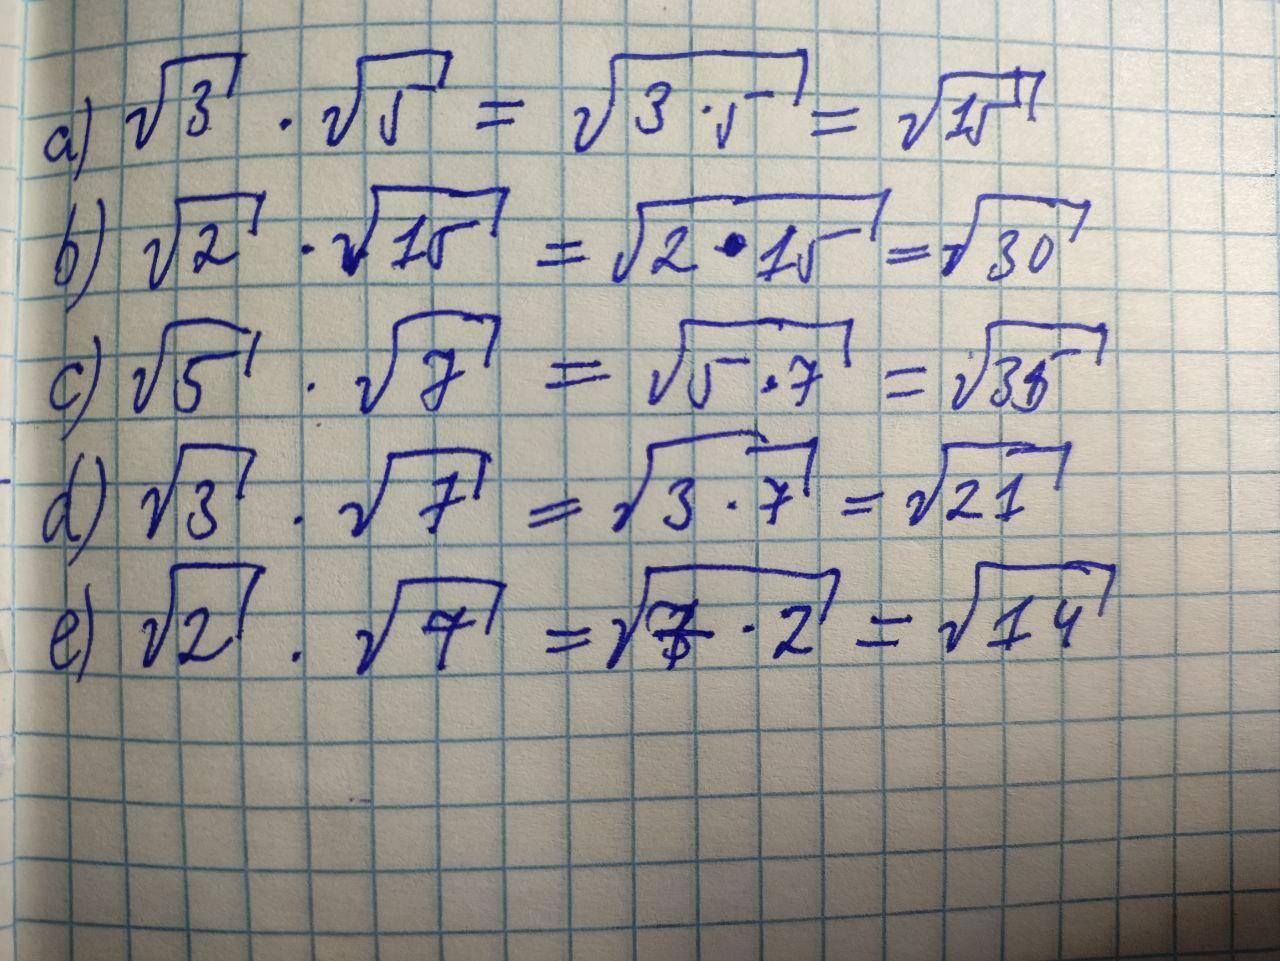 a) √3 · √5 = √3 · 5 = √15
b) √2 · √15 = √2 · 15 = √30
c) √5 · √7 = √5 · 7 = √35
d) √3 · √7 = √3 · 7 = √21
e) √2 · √7 = √7 · 2 = √14